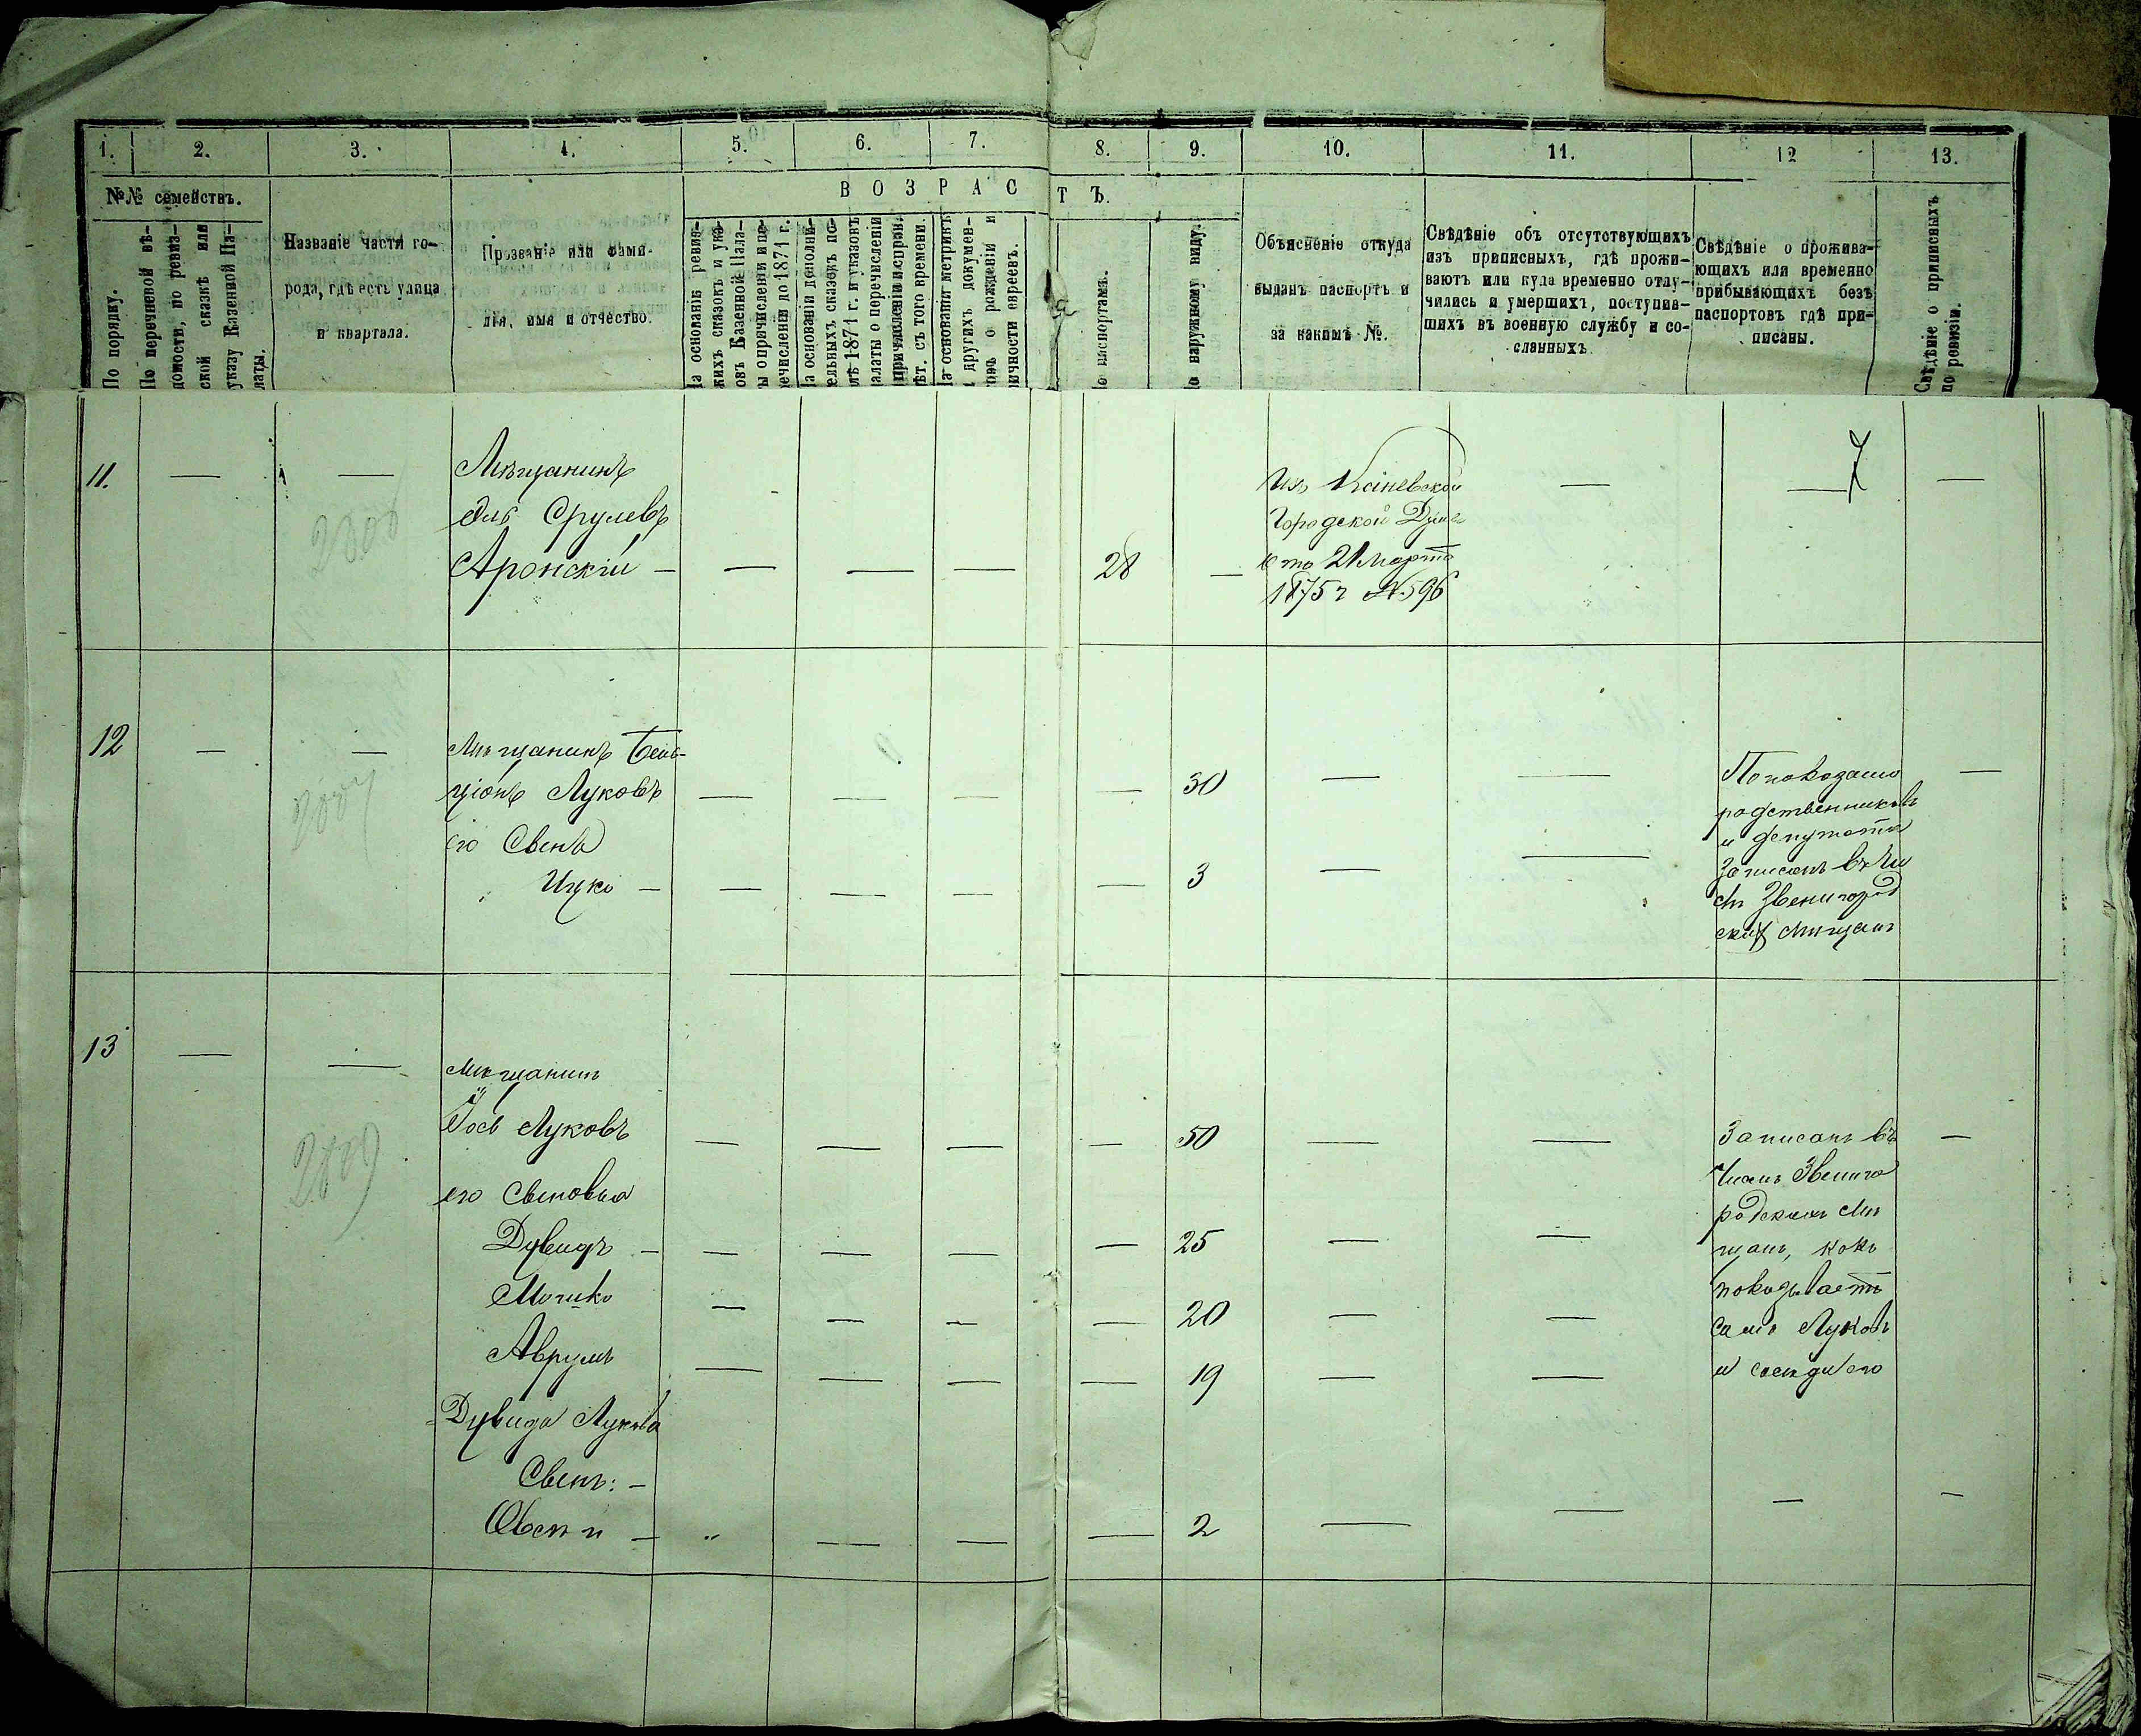 1. 2. 3. 4. 5. 6. 7. 8. 9. 10. 11. 12 13.
№№ семействъ.
По порядку.
По перечневой вѣ-
домости, по ревиз-
ской сказкѣ или
указу Казенной Па-
латы.
Названіе части го-
рода, гдѣ есть улица
и квартала.
Прозваніе или фами-
лія, имя и отчество.
ВОЗРАСТЪ.
На основаніи ревиз-
скихъ сказокъ и ука-
зовъ Казенной Пала-
ты о причисленіи и пе-
речисленіи до 1871 г.
На основаніи дополни-
тельныхъ сказокъ по-
слѣ 1871 г. и указовъ
палаты о перечисленіи
На основаніи метрикъ
и другихъ докумен-
товъ о рожденіи и
личности евреевъ.
По паспортамъ.
По наружному виду.
Объясненіе откуда
выданъ паспортъ и
за какимъ №.
Свѣдѣніе объ отсутствующихъ
изъ приписныхъ, гдѣ прожи-
ваютъ или куда временно отлу-
чились и умершихъ, поступив-
шихъ въ военную службу и со-
сланныхъ.
Свѣдѣніе о прожива-
ющихъ или временно
прибывающихъ безъ
паспортовъ гдѣ при-
писаны.
Свѣдѣніе о приписныхъ
по ревизіи.
11. — —
Мѣщанинъ
Эль Срулевъ
Аронскій — — — — 28 —
Изъ Каневской
Городской Думы
отъ 21 Марта
1875 г №596
— — —
12 — —
Мѣщанинъ Бенъ-
ціонъ Луковъ — — — — 30 — —
его Сынъ
Ицко — — — — — 3 — —
По показанію
родственниковъ
и депутата
записанъ въ чи
слѣ Звенигород
скихъ мѣщанъ
—
13 — —
Мѣщанинъ
Іось Луковъ — — — — 50 — —
его Сыновья
Дувидъ — — — — — 25 — —
Мошко — — — — 20 — —
Аврумъ — — — — 19 — —
Дувида Лукова
Сынъ: —
Овсей — „ — — — 2 — — — —
Записанъ въ
Числѣ Звениго
родскихъ Мѣ
щанъ, какъ
показываетъ
Самъ Луковъ
и сосѣди его
—